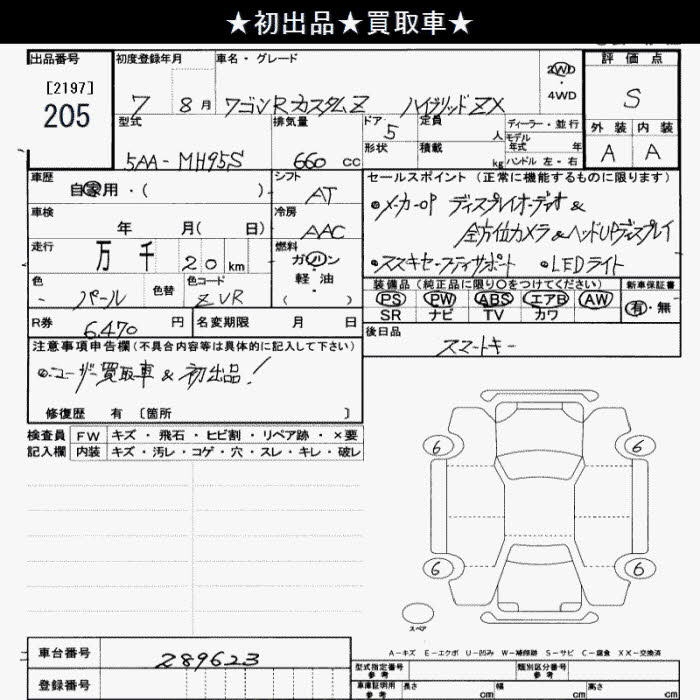 ★初出品★買取車★
出品番号
[2197]
205
初度登録年月
7 8月
車名・グレード
ワゴンRカスタムZ ハイブリッドZX
2WD
・
4WD
評価点
S
外装 内装
A A
型式
5AA-MH95S
排気量
660 CC
ドア 5
形状
定員 人
積載 kg
ディーラー・並行
モデル年式 年
ハンドル 左・右
車歴
自家用・( )
シフト
AT
車検
年 月( 日)
冷房
AAC
走行
万 千 20 km
燃料
ガソリン
・
軽油
( )
色
パール
色替
色コード
ZVR
R券
6,470 円
名変期限 月 日
セールスポイント(正常に機能するものに限ります)
◉メーカーOP ディスプレイオーディオ&
全方位カメラ&ヘッドUPディスプレイ
◉スズキセーフティサポート ◉LEDライト
装備品(純正品に限り○をつけてください)
PS PW ABS エアB AW
SR ナビ TV カワ
新車保証書
有・無
後日品
スマートキー
注意事項申告欄(不具合内容等は具体的に記入して下さい)
◉ユーザー買取車 & 初出品!
修復歴 有 〔箇所 〕
検査員 FW キズ・飛石・ヒビ割・リペア跡・×要
記入欄 内装 キズ・汚レ・コゲ・穴・スレ・キレ・破レ
6 6
6 6
スペア
A-キズ E-エクボ U-凹み W-補修跡 S-サビ C-腐食 XX-交換済
車台番号
289623
登録番号
型式指定番号
参考
類別区分番号
参考
車庫証明用
参考
長さ cm 幅 cm 高さ cm